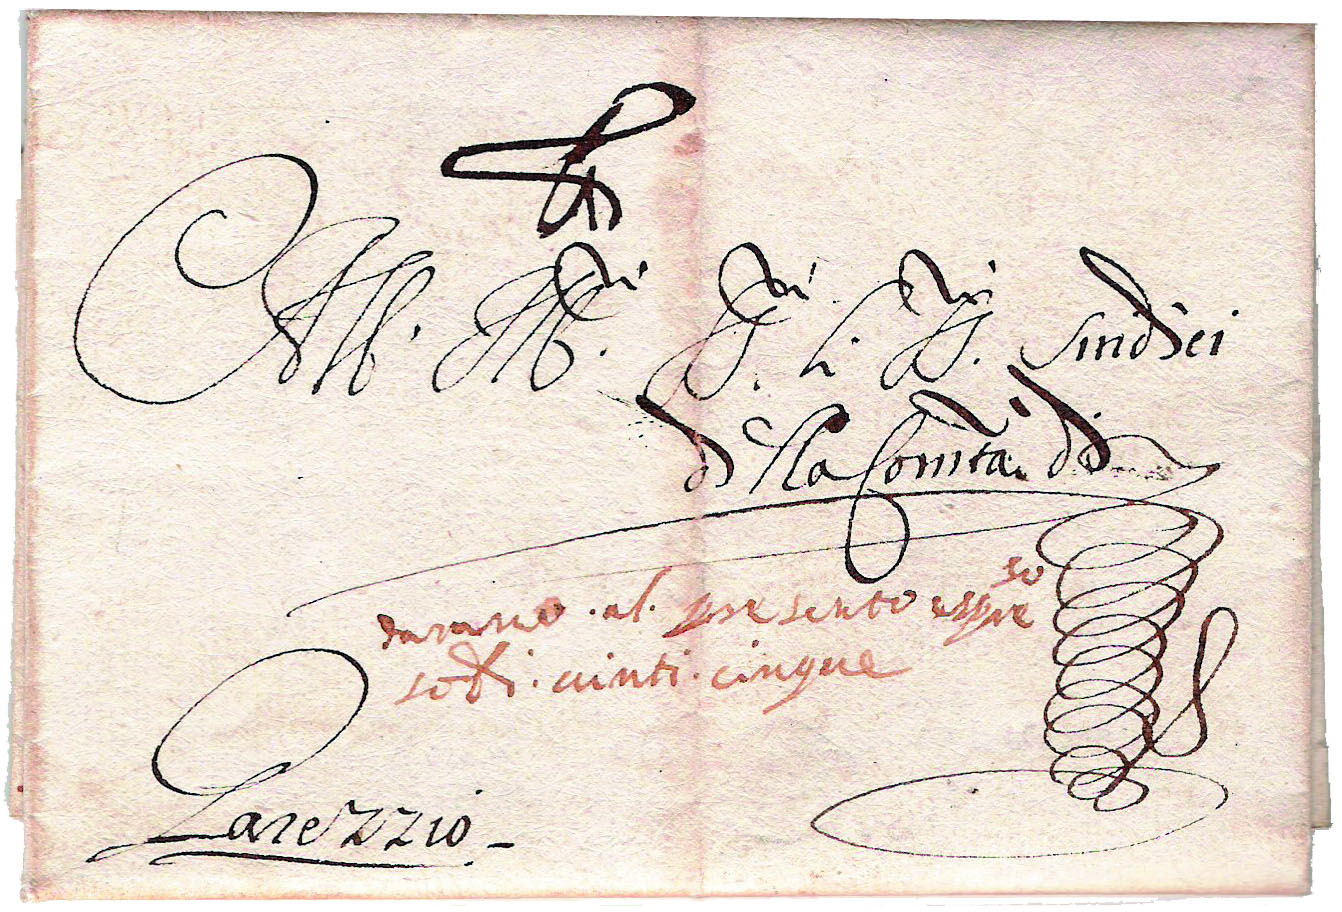 Alli. Illri. Sri. li. Sri. sindici
della Comta. di
darano. al. presento espre
so
soldi. vinti. cinque
Larezzio